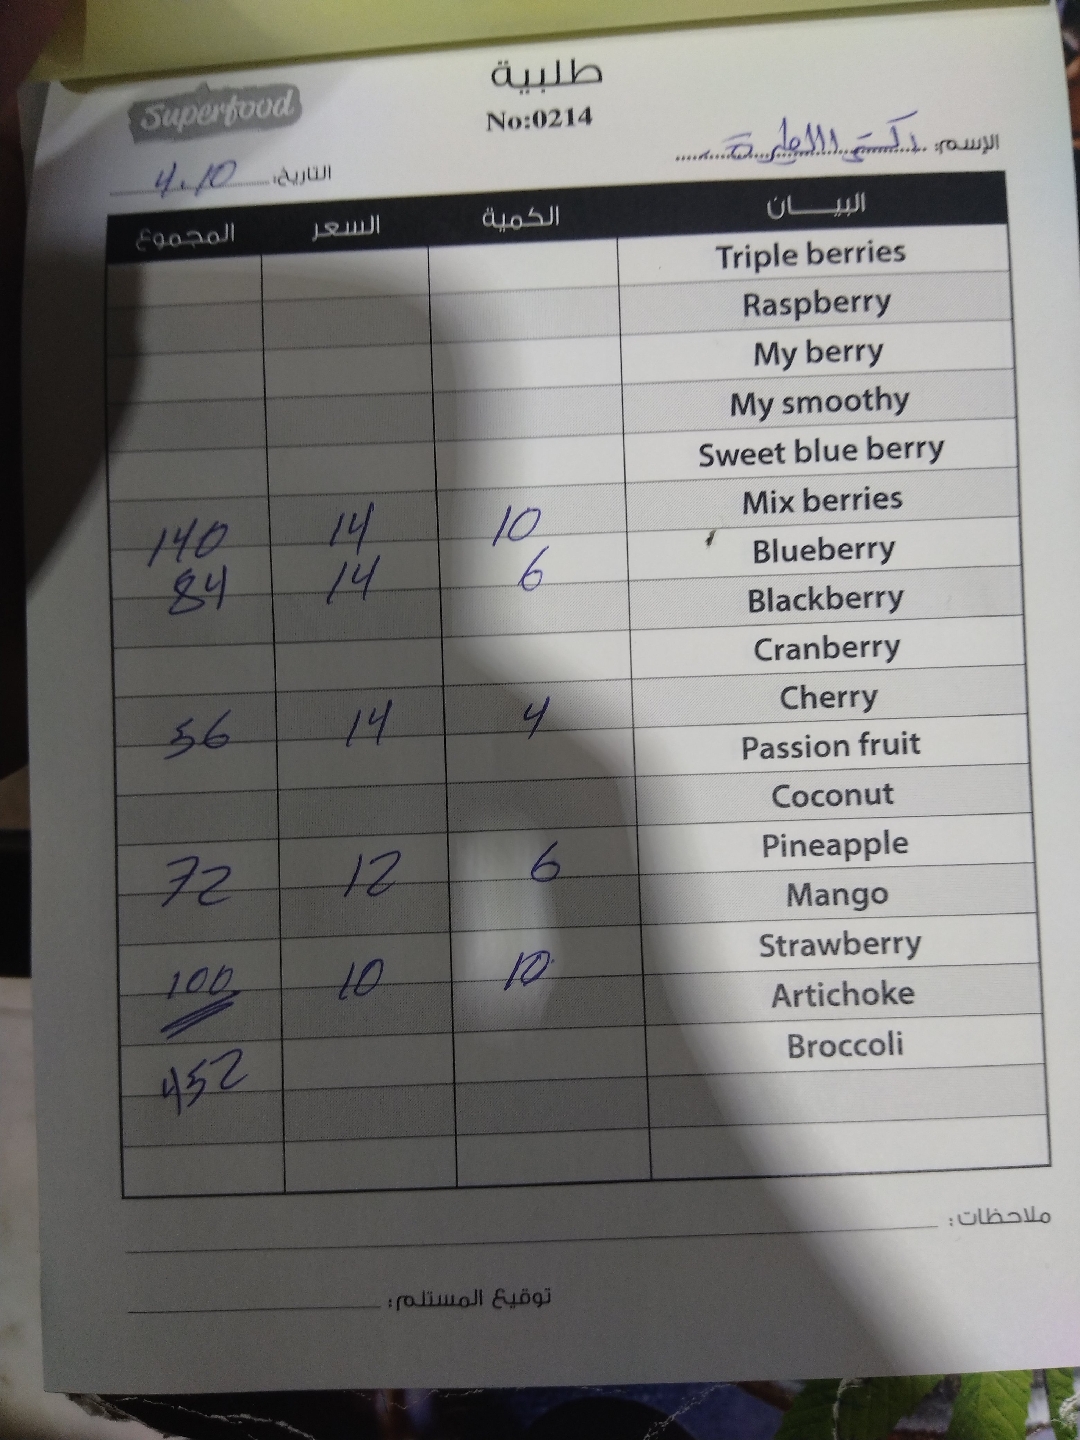 Superfood
طلبية
No:0214
الإسم:
التاريخ: 4.10
البيـــان الكمية السعر المجموع
Triple berries
Raspberry
My berry
My smoothy
Sweet blue berry
Mix berries 10 14 140
Blueberry 6 14 84
Blackberry
Cranberry
Cherry 4 14 56
Passion fruit
Coconut
Pineapple 6 12 72
Mango
Strawberry 10 10 100
Artichoke
Broccoli 452
ملاحظات:
توقيع المستلم: